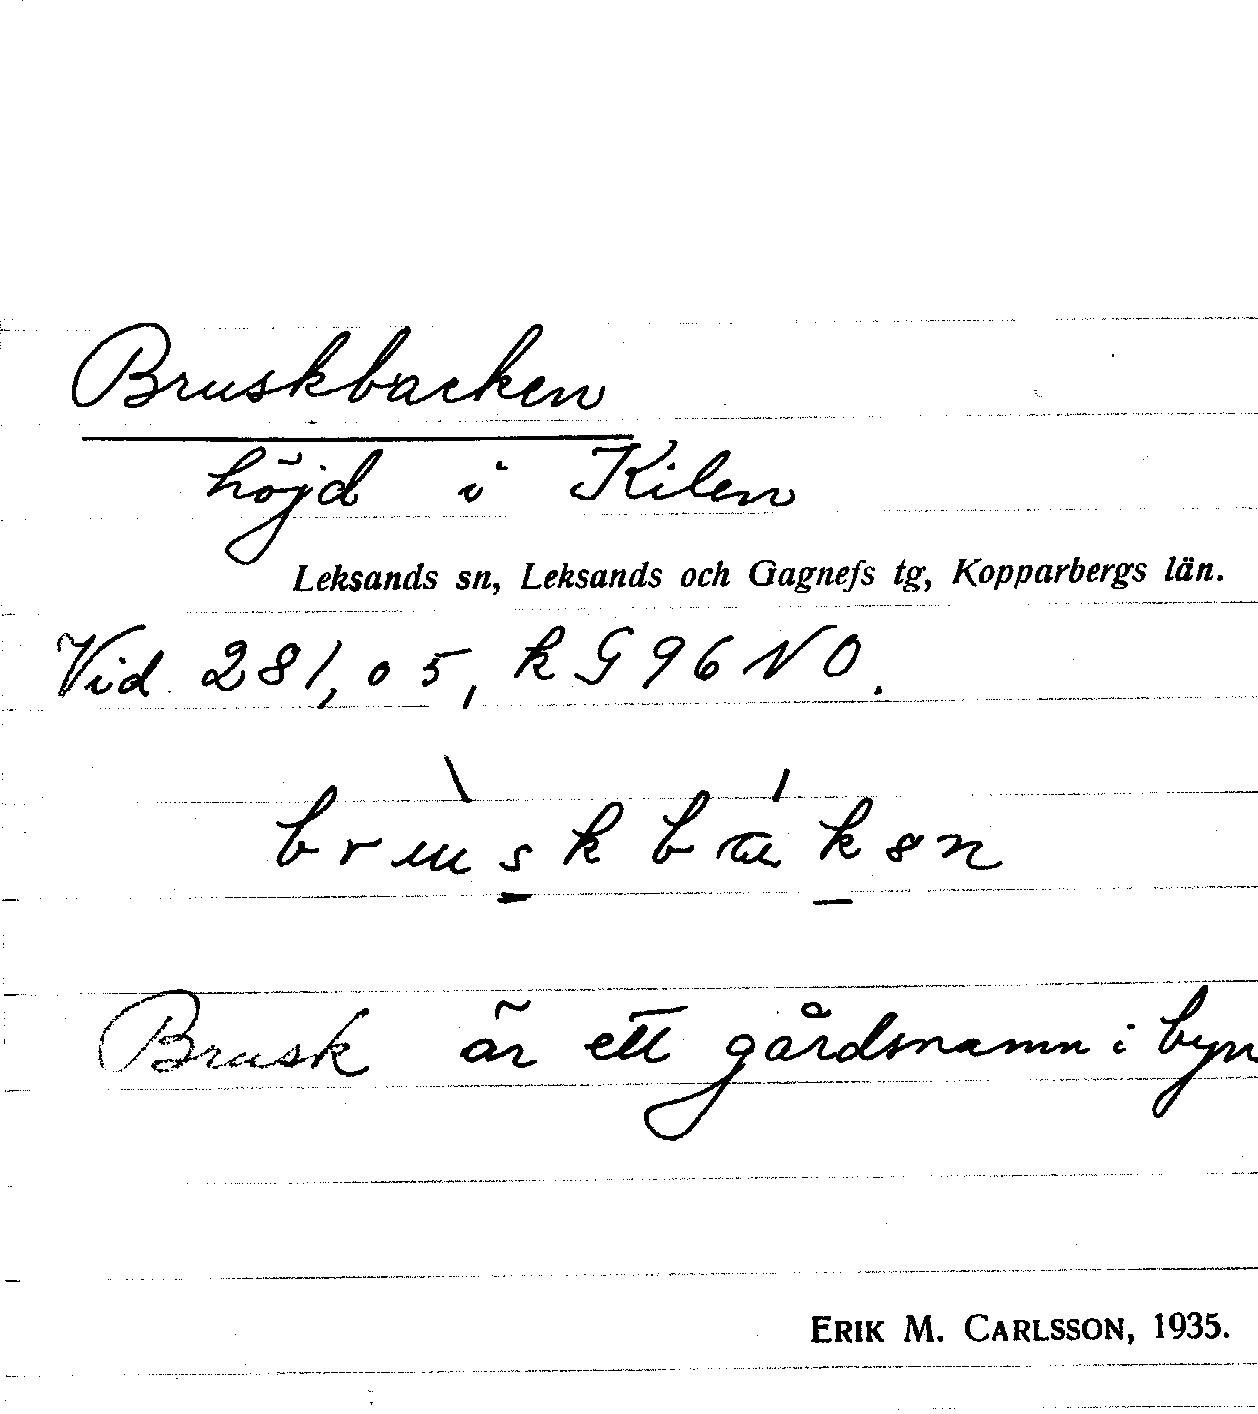 Bruskbacken
höjd i Kilen
Leksands sn, Leksands och Gagnefs tg, Kopparbergs län.
Vid 281,05, k G 96 NO.
bruskbakən
Brusk är ett gårdsnamn i byn
ERIK M. CARLSSON, 1935.